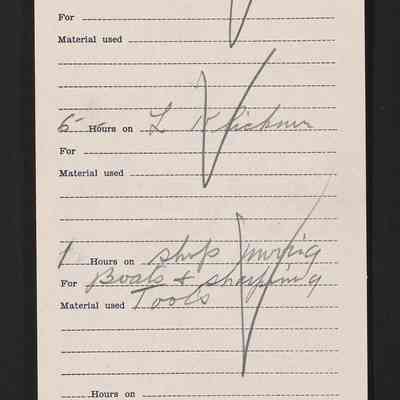 For
Material used
6 Hours on L Klickner
For
Material used
1 Hours on shop
For Boats & sharping
Material used Tools
Hours on